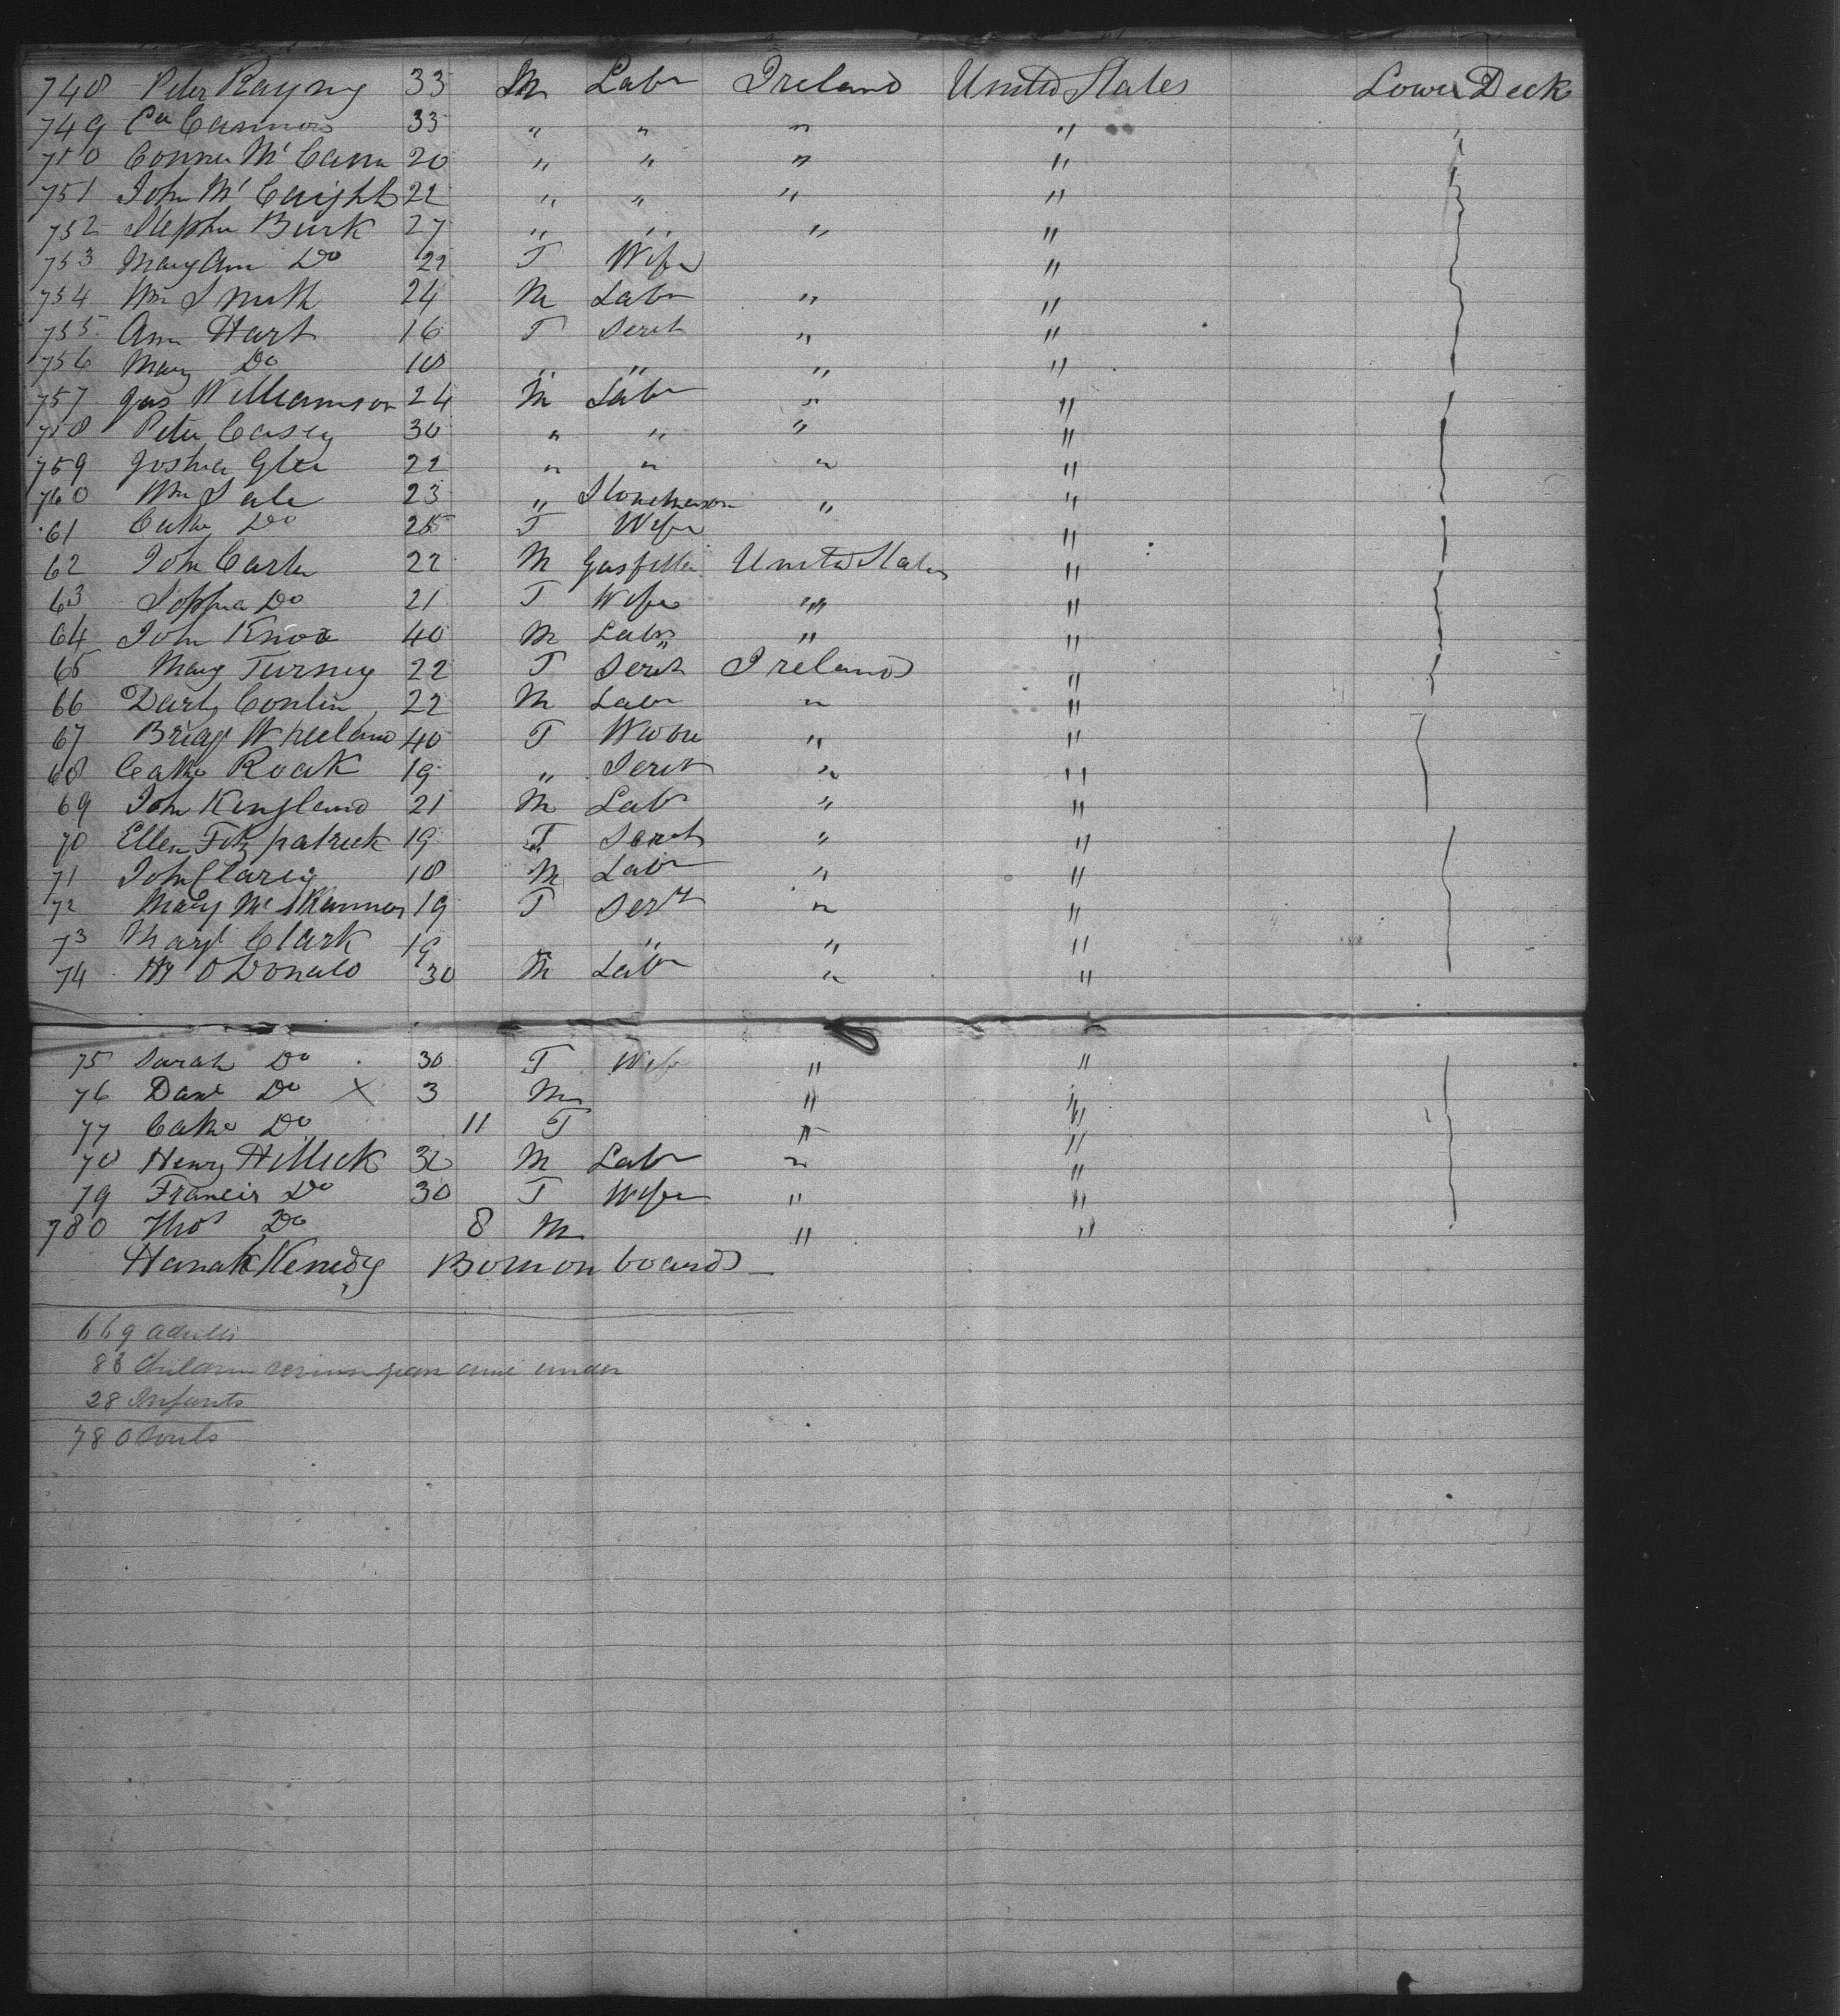 748 Peter Rayny 33 M Labr Ireland United States Lower Deck
749 Cannon 33 " " " " "
750 Connor McCann 20 " " " "
751 John McCaight 22 " " " "
752 Stephn Burk 27 " " " "
753 Mary Ann Do 22 F Wife "
754 Wm Smith 24 M Labr " "
755 Ann Hart 16 F Servt " "
756 Mary Do 18 " " " "
757 Jas Williamson 24 M Labr " "
758 Peter Casey 30 " " " "
759 Joshua Glen 22 " " " "
760 Wm Sale 23 " Stonemason " "
61 Cathe Do 25 F Wife "
62 John Carter 22 M Gasfitter United States "
63 Sophia Do 21 F Wife " "
64 John Knox 40 M Labr " "
65 Mary Turney 22 F Servt Ireland "
66 Darby Conlin 22 M Labr " "
67 Bridgt Wheeland 40 F " "
68 Cathe Roak 19 " Servt " "
69 John Kingland 21 M Labr " "
70 Ellen Fitzpatrick 19 F Servt " "
71 John Clarey 18 M Labr " "
72 Mary 19 F Servt " "
73 Margt Clark 19 " " " "
74 Hy O Donald 30 M Labr " "
75 Sarah Do 30 F Wife " "
76 Danl Do X 3 M " "
77 Cathe Do 11 F " "
78 Henry Hillick 30 M Labr " "
79 Francis Do 30 F Wife " "
780 Thos Do 8 M " "
Hanah Kenedy Born on board
669 adults
83 Children seven year and under
28 Infants
780 Souls